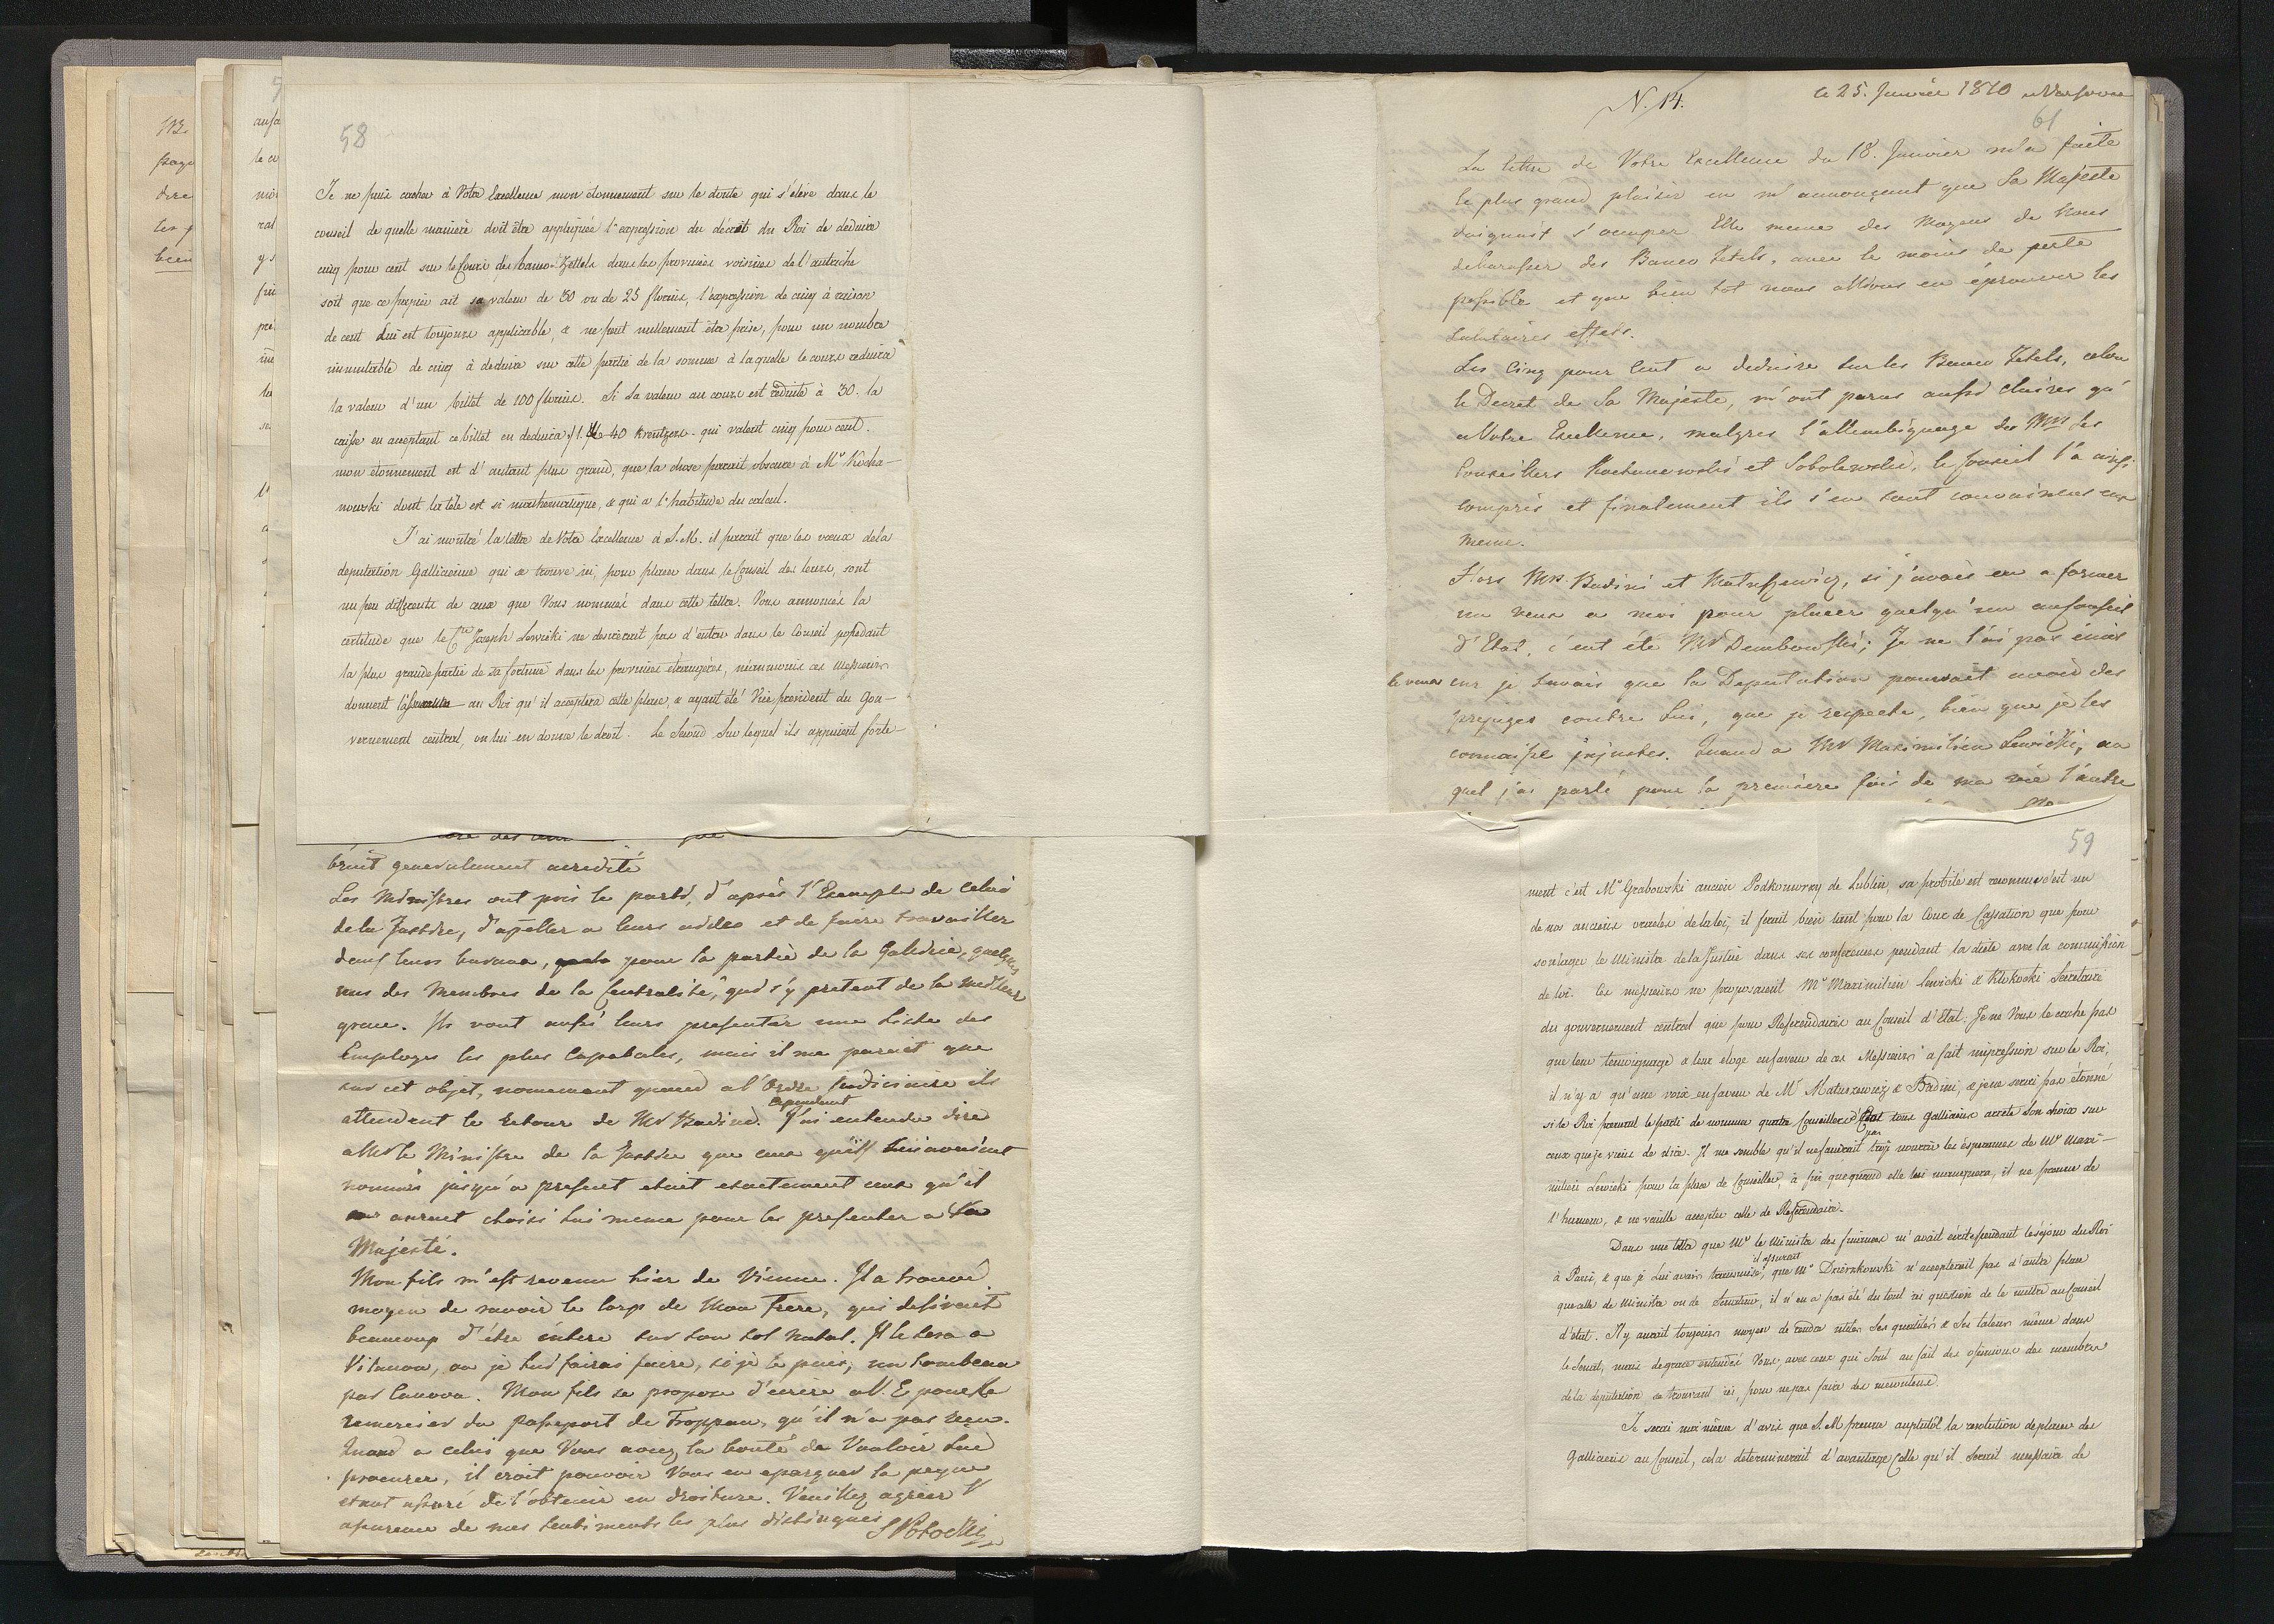 58
Je ne puis cacher à Votre Excellence mon étonnement sur le doute qui s'élève dans le
conseil de quelle manière doit être appliquée l'expression du décret du Roi de déduire
cinq pour cent sur le Cours des banco-Zettels dans les provinces voisines de l'autriche
soit que ce papier ait sa valeur de 30 ou de 25 florins, l'expression de cinq à raison
de cent Lui est toujours applicable, & ne peut nullement être prise, pour un nombre
immutable de cinq à deduire sur cette partie de la somme à laquelle le cours reduira
la valeur d'un billet de 100 florins. Si sa valeur au cours est reduite à 30. la
caisse en acceptant ce billet en deduira f 1. 40 Kreutzers - qui valent cinq pour cent.
mon étonnement est d'autant plus grand, que la chose parait obscure à Mr Kocha-
nowski dont la tête est si mathematique, & qui a l'habitude du calcul.
J'ai montré la lettre de Votre Excellence à S. M. il parait que les vœux de la
deputation Gallicienne qui se trouve ici, pour placer dans le Conseil des leurs, sont
un peu differents de ceux que Vous nommés dans cette lettre. Vous annoncés la
certitude que le Cte Joseph Lewicki ne desirerait pas d'entrer dans le Conseil possedant
la plus grande partie de sa fortune dans les provinces étrangères, néanmoins ces Messieurs
donnent l'assurance au Roi qu'il acceptera cette place, & ayant été Vice president du Gou-
vernement central, on lui en donne le droit. Le Second Sur lequel ils appuient forte-
bruit generalement acredité
Les Ministres ont pris le parti, d'après l'Exemple de celui
de la Justice, d'apeller a leurs aides et de faire travailler
dans leurs bureaux, pour la partie de la Galicie, quelques
uns des Membres de la Centralité, qui s'y pretent de la meilleur
grace. Ils vont aussi leurs presenter une Liste des
Employes les plus Capabales, mais il me parait que
sur cet objet, nomement quand a l'Ordre Judiciaire ils
attendent le Retour de Mr Badini. cependant J'ai entendu dire
a Mr le Ministre de la Justice que ceux qu'ils lui avaient
nommés jusqu'a present etait exactement ceux qu'il
auroit choisi lui meme pour les presenter a Sa
Majesté.
Mon fils m'est revenu hier de Vienne. Il a trouvé
moyen de ravoir le Corps de Mon Frere, qui desirait
beaucoup d'être enteré sur son sol natal. Il le sera a
Vilanow, ou je lui fairai faire, si je le puis, un tombeau
par Canova. Mon fils se propose d'ecrire a V. E. pour la
remercier du passeport de Troppau, qu'il n'a pas reçu.
Quand a celui que Vous aviez la bonté de Vouloir Lui
procurer, il croit pouvoir Vous en epargner la peyne
etant assuré de l'obtenir en droiture. Veuillez agréer l'
assurance de mes sentiments les plus distingues
S Potocki
N. 14.
le 25. Janvier 1810 a Varsovie
61
La lettre de Votre Excellence du 18. Janvier m'a faite
le plus grand plaisir en m'annonçant que Sa Majesté
daignait s'occuper Elle meme des Moyens de Nous
debarasser des Banco Zetels, avec le moins de perte
possible et que bien tot nous allions en éprouver les
salutaires effets.
Les Cinq pour Cent a deduire sur les Banco Zetels, selon
le Decret de Sa Majesté, m'ont parus aussi claires qu'
a Votre Excellence, malgres l'allembiquage des Mrs les
Conseillers Kochanowski et Sobolewski, le Conseil l'a ainsi
compris et finalement ils s'en sont convaincus eux
meme.
Hors Mrs. Badini et Matuszewicz, si j'avais eu a former
un veux a moi pour placer quelqu'un au Conseil
d'Etat, c'eut été Mr Dembowski; Je ne l'ai pas émis
le veux car je savais que la Deputation pourrait avoir des
prejuges contre Lui, que je respecte, bien que je les
connaisse injustes. Quand a Mr Maximilien Lewicki, au
quel j'ai parlé pour la premiere fois de ma vie l'autre
59
ment c'est Mr Grabowski ancien Podkomorzy de Lublin, sa probité est reconnue c'est un
de nos anciens oracles de la loi, il serait bien tant pour la Cour de Cassation que pour
soulager le Ministre de la Justice dans ses conferences pendant la diete avec la commission
de loi. Ces messieurs ne proposaient Mr Maximilien Lewicki & Klokocki Secretaire
du gouvernement central que pour Referendaires au Conseil d'Etat. Je ne Vous le cache pas
que leur temoignage & leur eloge en faveur de ces Messieurs a fait impression sur le Roi,
il n'y a qu'une voix en faveur de Mr Matuszewicz & Badini, & je ne serai pas étonné
si le Roi prenant le parti de nommer quatre Conseillers d'Etat tous Galliciens arrete Son choix sur
ceux que je viens de dire. Il me semble qu'il ne faudrait pas trop nourrir les ésperances de Mr Maxi-
milien Lewicki pour la place de Conseiller, à fin que quand elle lui manquera, il ne prenne de
l'humeur, & ne veuille accepter celle de Referendaire.
Dans une lettre que Mr le Ministre des finances m'avait écrite pendant le séjour du Roi
à Paris, & que je Lui avais transmise, il assurait que Mr Dzierzkowski n'accepterait pas d'autre place
que celle de Ministre ou de Senateur, il n'en a pas été du tout ici question de le mettre au Conseil
d'etat. Il y aurait toujours moyen de rendre utiles Ses qualités & Ses talens même dans
le Senat, mais de grace entendés Vous, avec ceux qui Sont au fait des opinions des membres
de la deputation se trouvant ici, pour ne pas faire des mecontens.
Je serai moi même d'avis que S. M. prenne au plutôt la resolution de placer des
Galliciens au Conseil, cela determinerait d'avantage celle qu'il serait nécessaire de